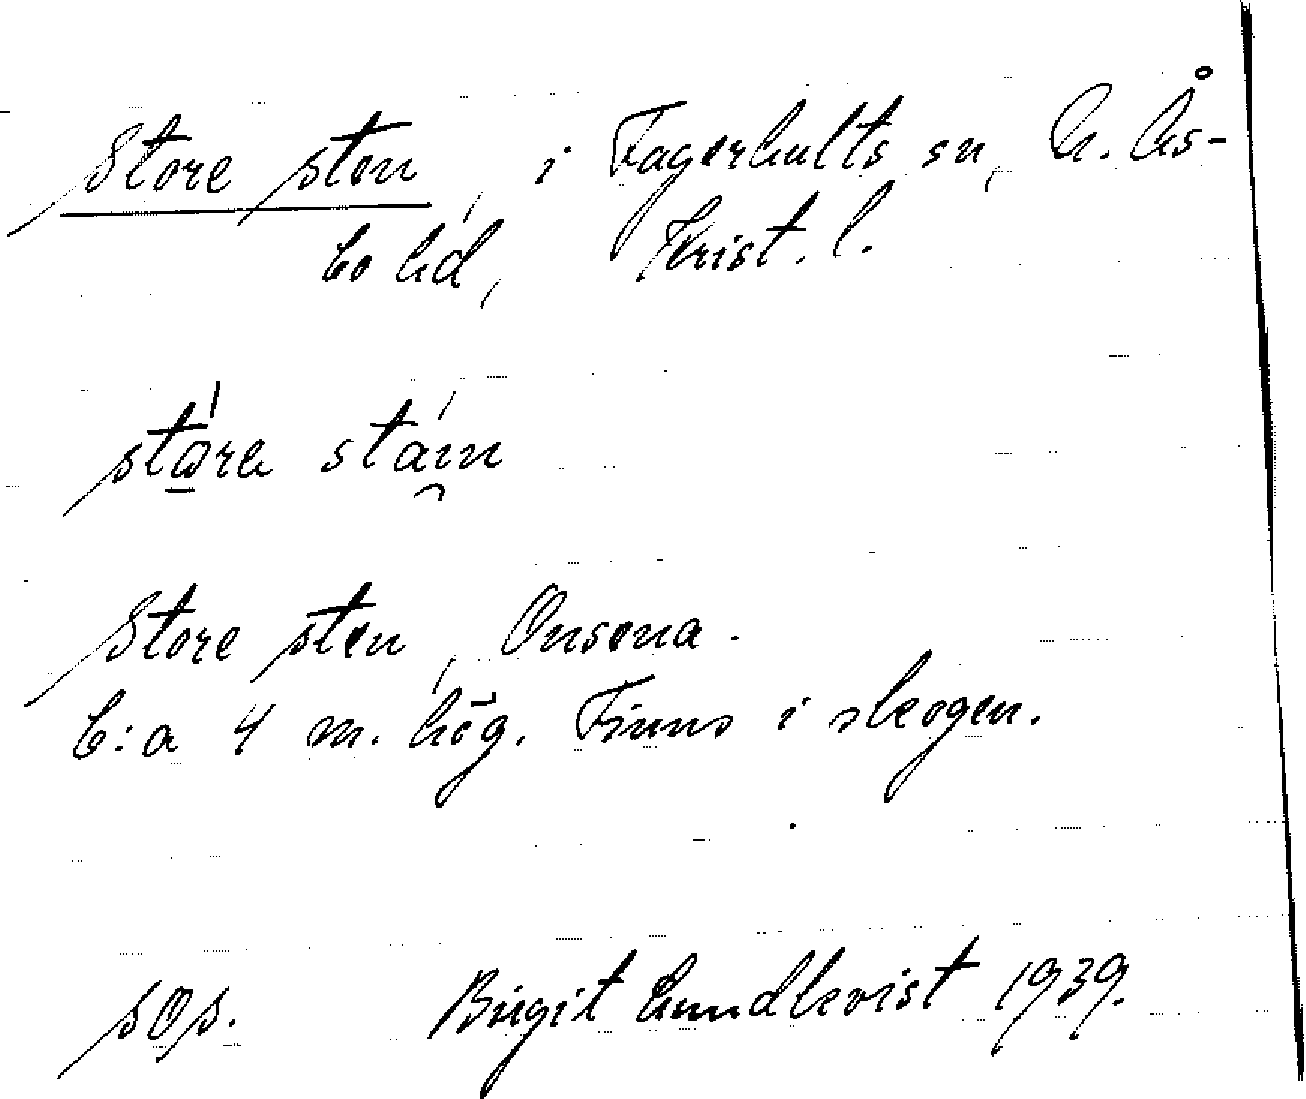 Store sten, i Fagerhults sn, N. Ås-
bo hd, Krist. l.
stǻra stáin
Store sten, Onsena.
C:a 4 m. hög. Finns i skogen.
sOs. Birgit Lundkvist 1939.